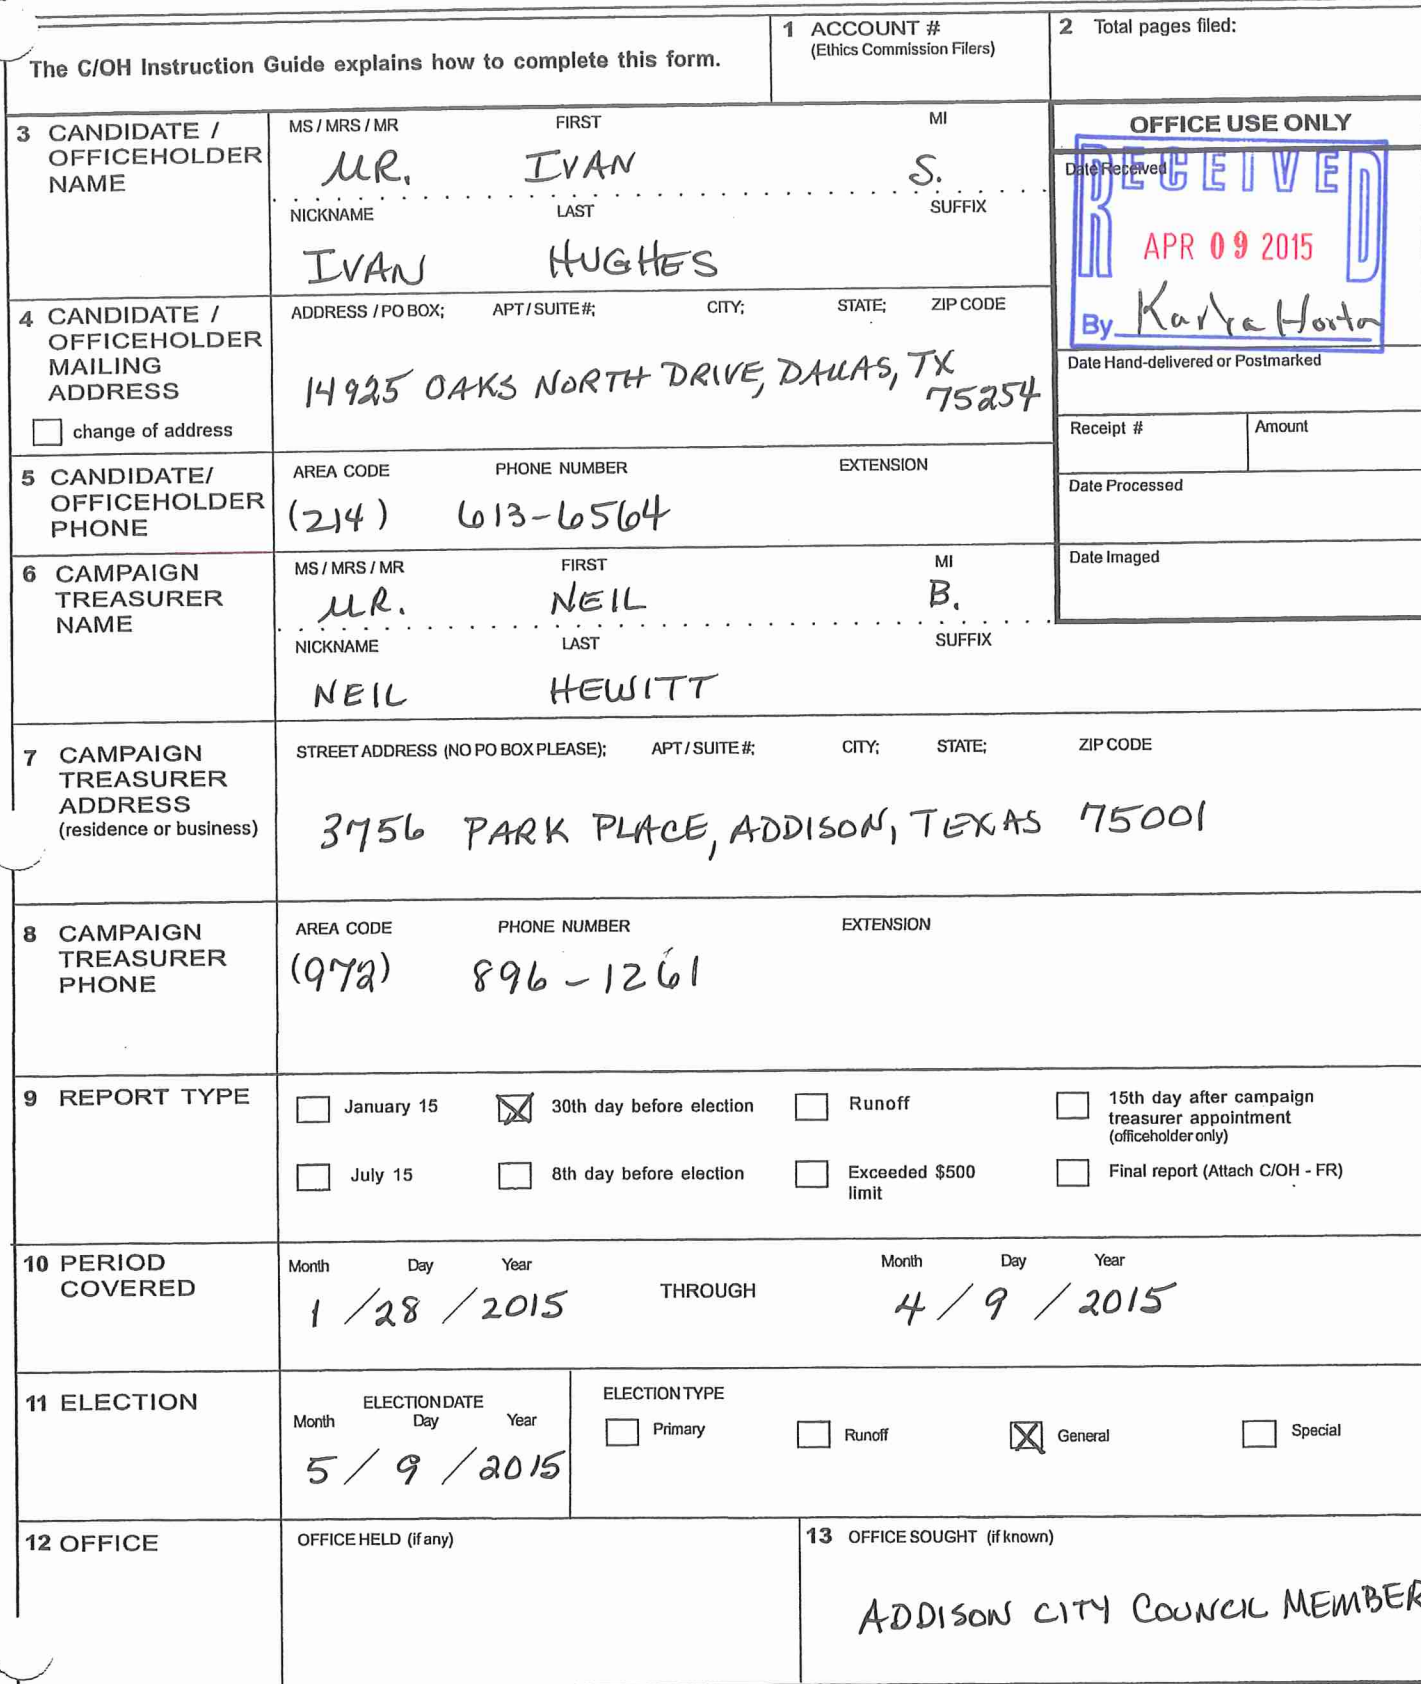 The C/OH Instruction Guide explains how to complete this form.
1 ACCOUNT #
(Ethics Commission Filers)
2 Total pages filed:
3 CANDIDATE / OFFICEHOLDER NAME
MS / MRS / MR FIRST MI
MR. IVAN S.
NICKNAME LAST SUFFIX
IVAN HUGHES
OFFICE USE ONLY
Date Received
RECEIVED
APR 09 2015
By Karla Horton
Date Hand-delivered or Postmarked
Receipt # Amount
Date Processed
Date Imaged
4 CANDIDATE / OFFICEHOLDER MAILING ADDRESS
change of address
ADDRESS / PO BOX; APT / SUITE #; CITY; STATE; ZIP CODE
14925 OAKS NORTH DRIVE, DALLAS, TX
75254
5 CANDIDATE/ OFFICEHOLDER PHONE
AREA CODE PHONE NUMBER EXTENSION
(214) 613-6564
6 CAMPAIGN TREASURER NAME
MS / MRS / MR FIRST MI
MR. NEIL B.
NICKNAME LAST SUFFIX
NEIL HEWITT
7 CAMPAIGN TREASURER ADDRESS
(residence or business)
STREET ADDRESS (NO PO BOX PLEASE); APT / SUITE #; CITY; STATE; ZIP CODE
3756 PARK PLACE, ADDISON, TEXAS 75001
8 CAMPAIGN TREASURER PHONE
AREA CODE PHONE NUMBER EXTENSION
(972) 896-1261
9 REPORT TYPE
January 15 30th day before election Runoff 15th day after campaign treasurer appointment (officeholder only)
July 15 8th day before election Exceeded $500 limit Final report (Attach C/OH - FR)
10 PERIOD COVERED
Month Day Year THROUGH Month Day Year
1 / 28 / 2015 4 / 9 / 2015
11 ELECTION
ELECTION DATE
Month Day Year
5 / 9 / 2015
ELECTION TYPE
Primary Runoff General Special
12 OFFICE
OFFICE HELD (if any)
13 OFFICE SOUGHT (if known)
ADDISON CITY COUNCIL MEMBER